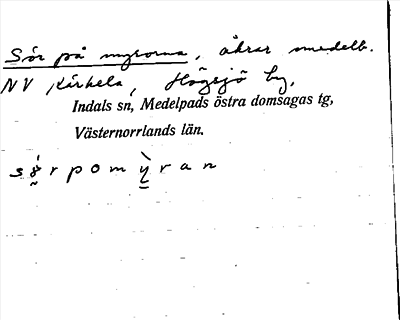 Sör på myrorna, åkrar medelb.
NV Kärkela, Högsjö by,
Indals sn, Medelpads östra domsagas tg,
Västernorrlands län.
sørpomỳran